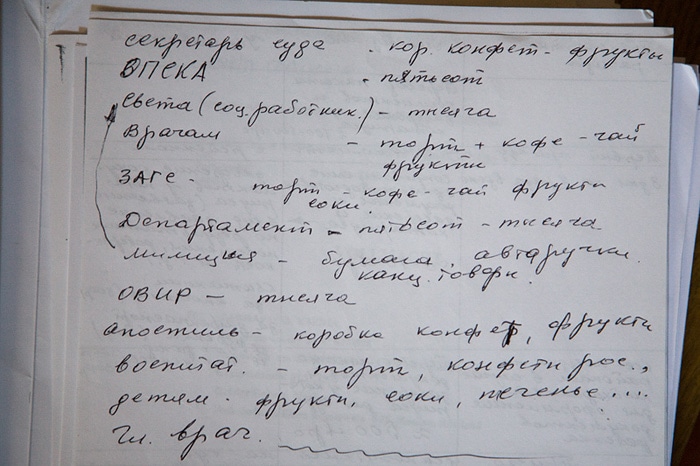 секретарь суда - кор. конфет - фрукты
ВПЕКА - пятьсот
Света (соц. работник.) - тысяча
Врачам - торт + кофе - чай
фрукты
ЗАГС - торт - кофе - чай фрукты
соки.
Департамент - пятьсот - тысяча
милиция - бумага, автаручки.
канц. товары.
ОВИР - тысяча
апостиль - коробка конфет, фрукты
воспитат. - торт, конфеты рос.,
детям - фрукты, соки, печенье, ...
Гл. врач.